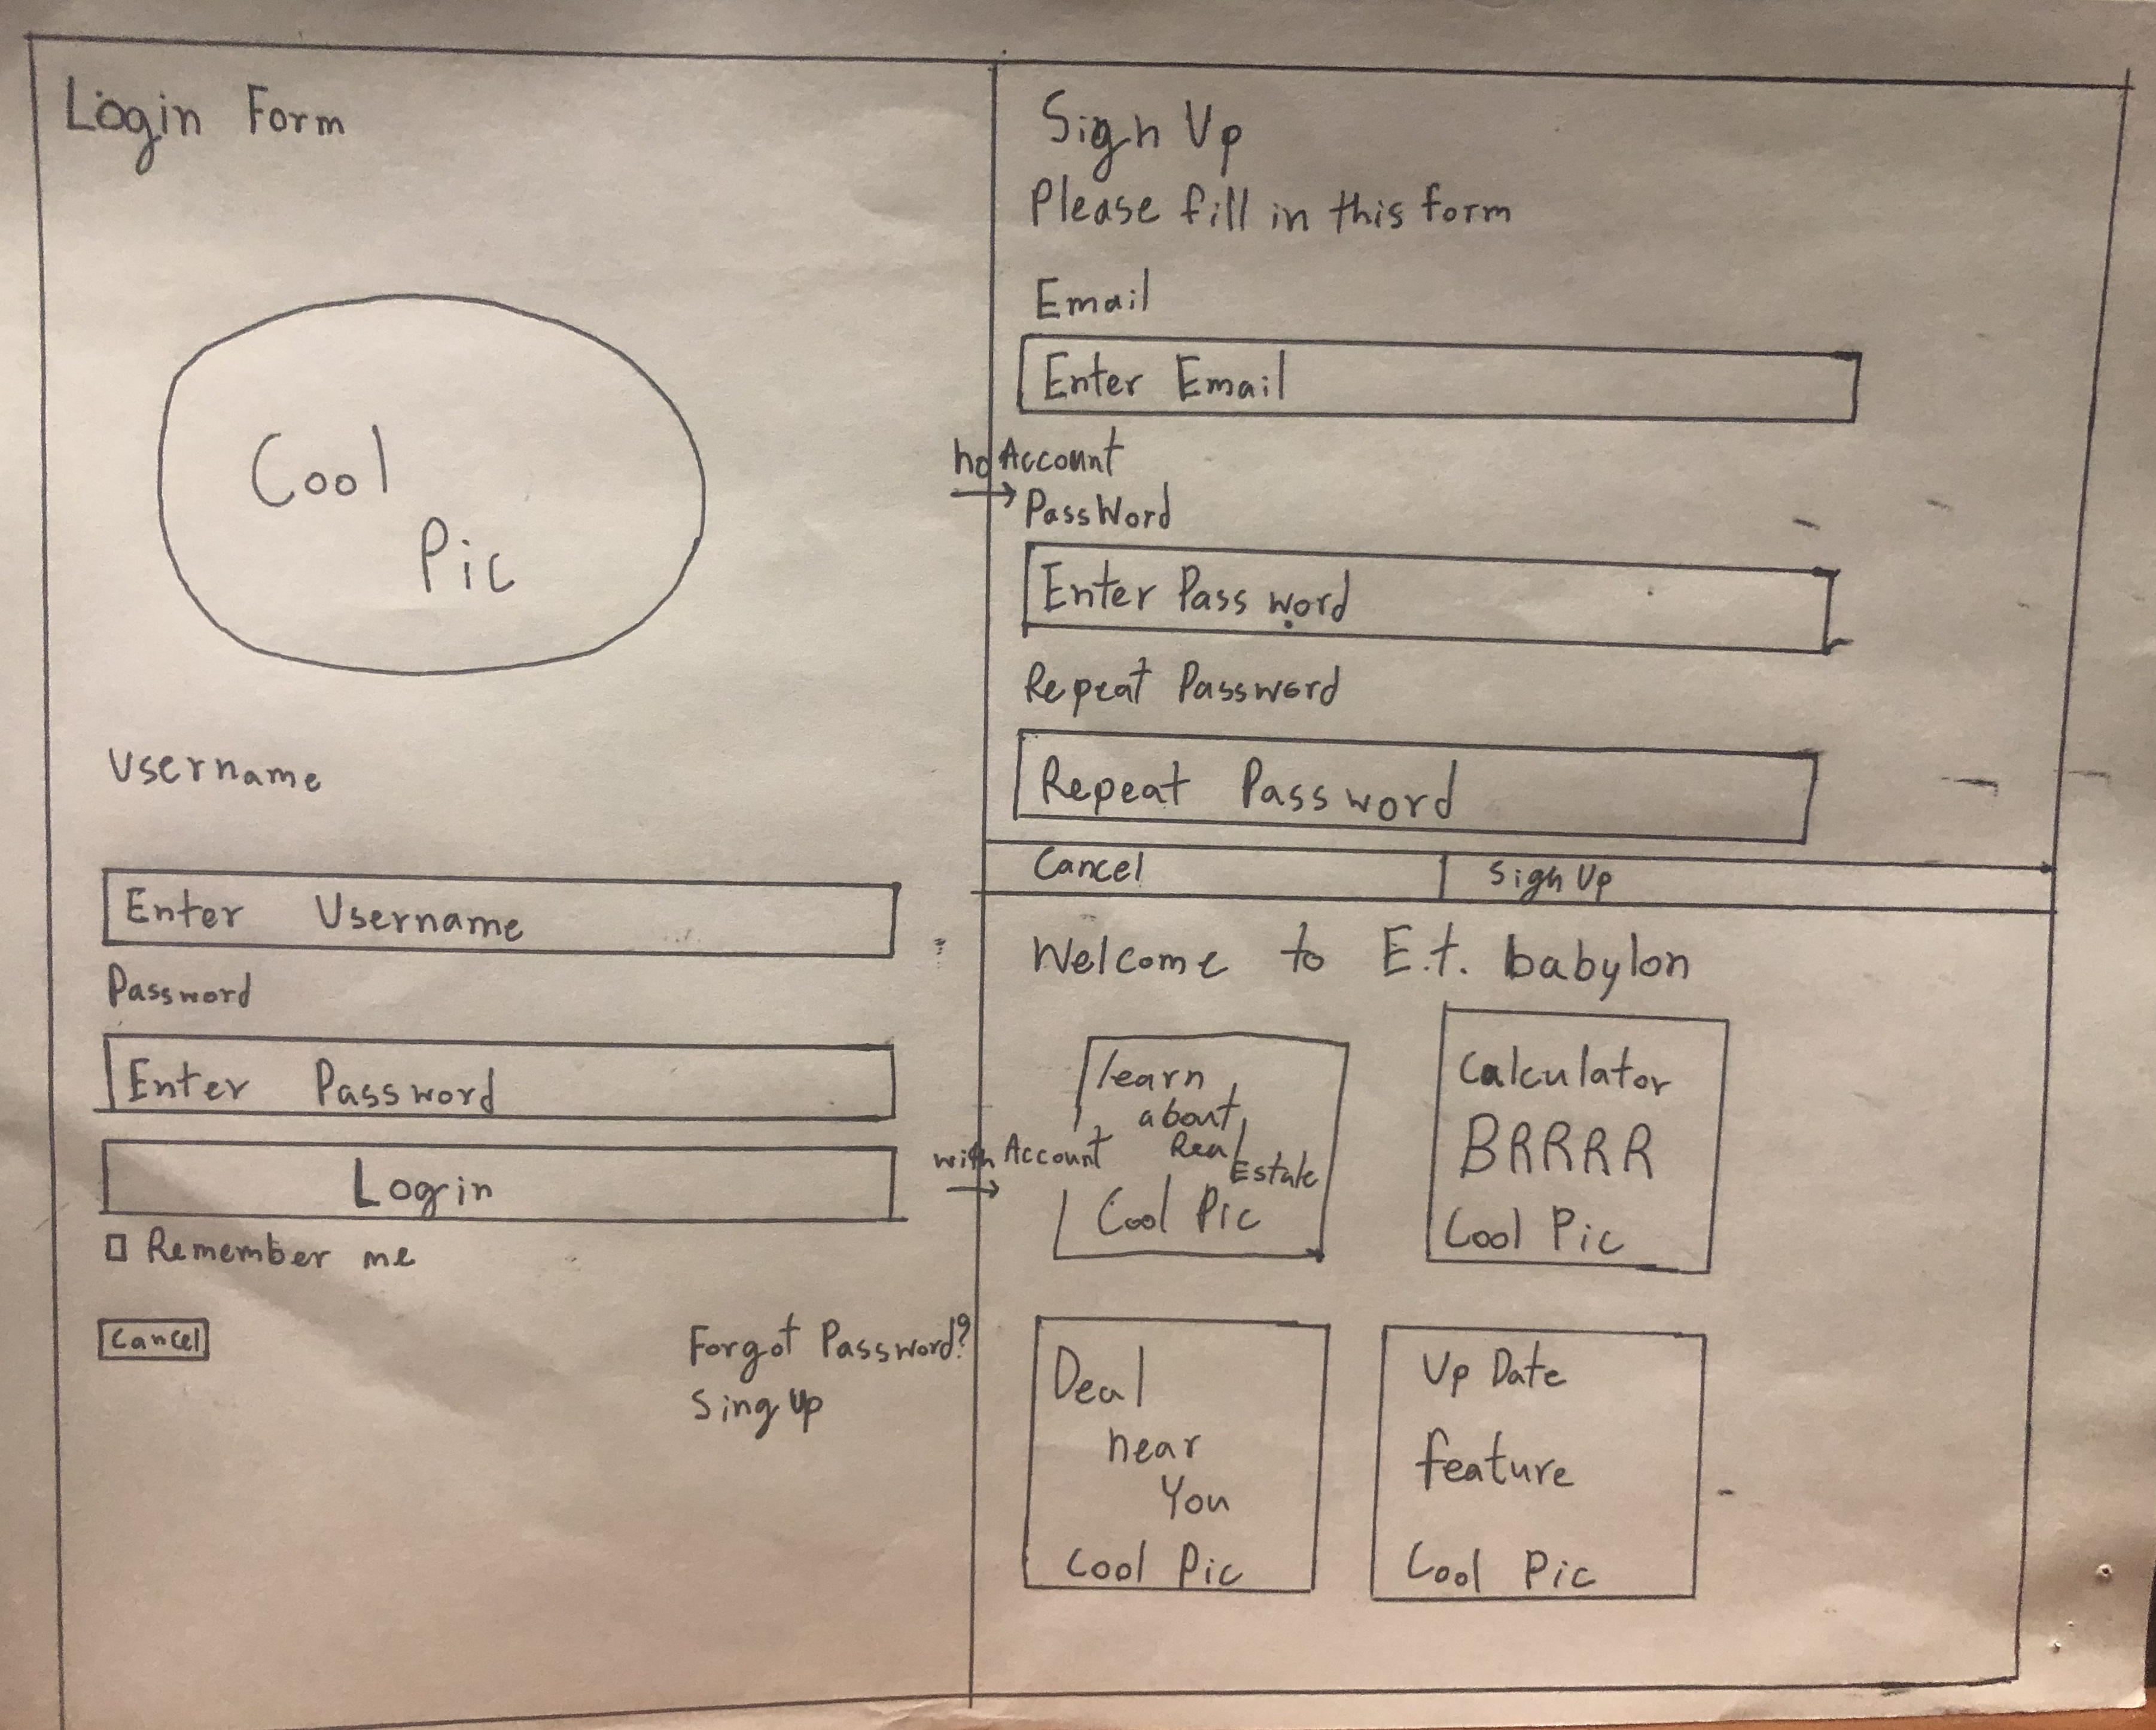 Login Form
Cool
Pic
Username
Enter Username
Password
Enter Password
Login
Remember me
Cancel
Forgot Password?
Sing up
Sign Up
Please fill in this form
Email
Enter Email
no Account
PassWord
Enter Password
Repeat Password
Repeat Password
Cancel
Sign Up
Welcome to E.t. babylon
with Account
learn
about
Real
Estate
Cool Pic
Calculator
BRRRR
Cool Pic
Deal
near
You
Cool Pic
Up Date
feature
Cool Pic